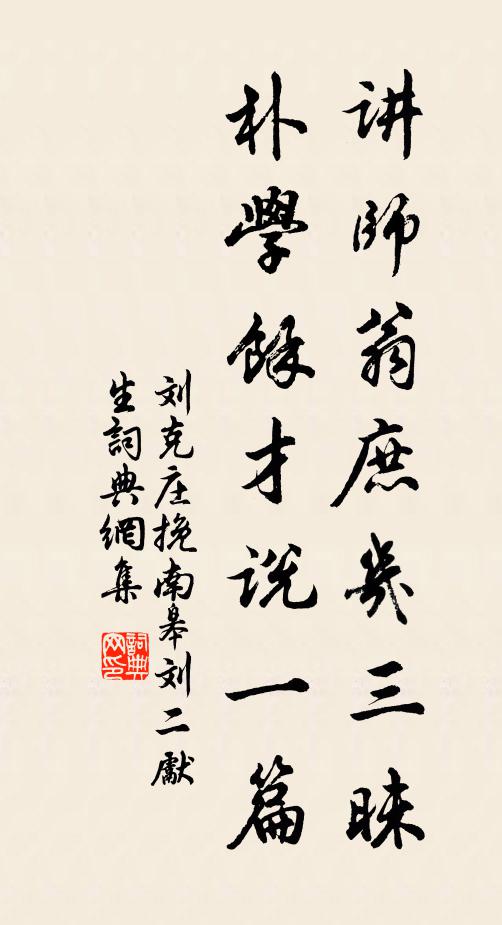 讲师翁庶几三昧
朴學餘才说一篇
刘克庄挽南皋刘二獻
生詞典網集
詞典网印